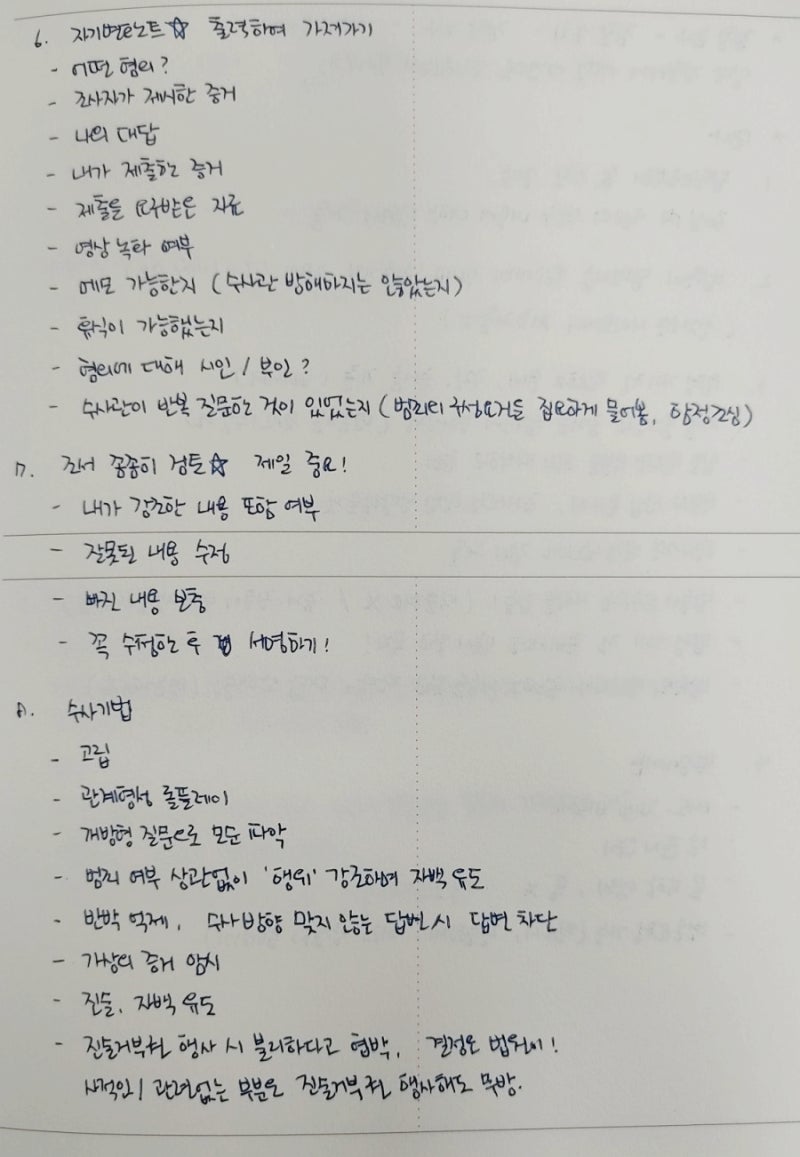 6. 자기변호노트☆ 출력하여 가져가기
- 어떤 혐의?
- 조사자가 제시한 증거
- 나의 대답
- 내가 제출한 증거
- 제출을 요구받은 자료
- 영상 녹화 여부
- 메모 가능한지 (수사관 방해하지는 않았는지)
- 휴식이 가능했는지
- 혐의에 대해 시인 / 부인?
- 수사관이 반복 질문한 것이 있었는지 (범죄의 구성요건을 집요하게 물어봄, 함정조심)
7. 조서 꼼꼼히 검토☆ 제일 중요!
- 내가 강조한 내용 포함 여부
- 잘못된 내용 수정
- 빠진 내용 보충
- 꼭 수정한 후 서명하기!
8. 수사기법
- 고립
- 관계형성 롤플레이
- 개방형 질문으로 모순 파악
- 범죄 여부 상관없이 '행위' 강조하여 자백 유도
- 반박 억제, 수사방향 맞지 않는 답변 시 답변 차단
- 가상의 증거 암시
- 진술, 자백 유도
- 진술거부권 행사 시 불리하다고 협박, 결정은 법원이!
사적인 / 관련없는 부분은 진술거부권 행사해도 무방.